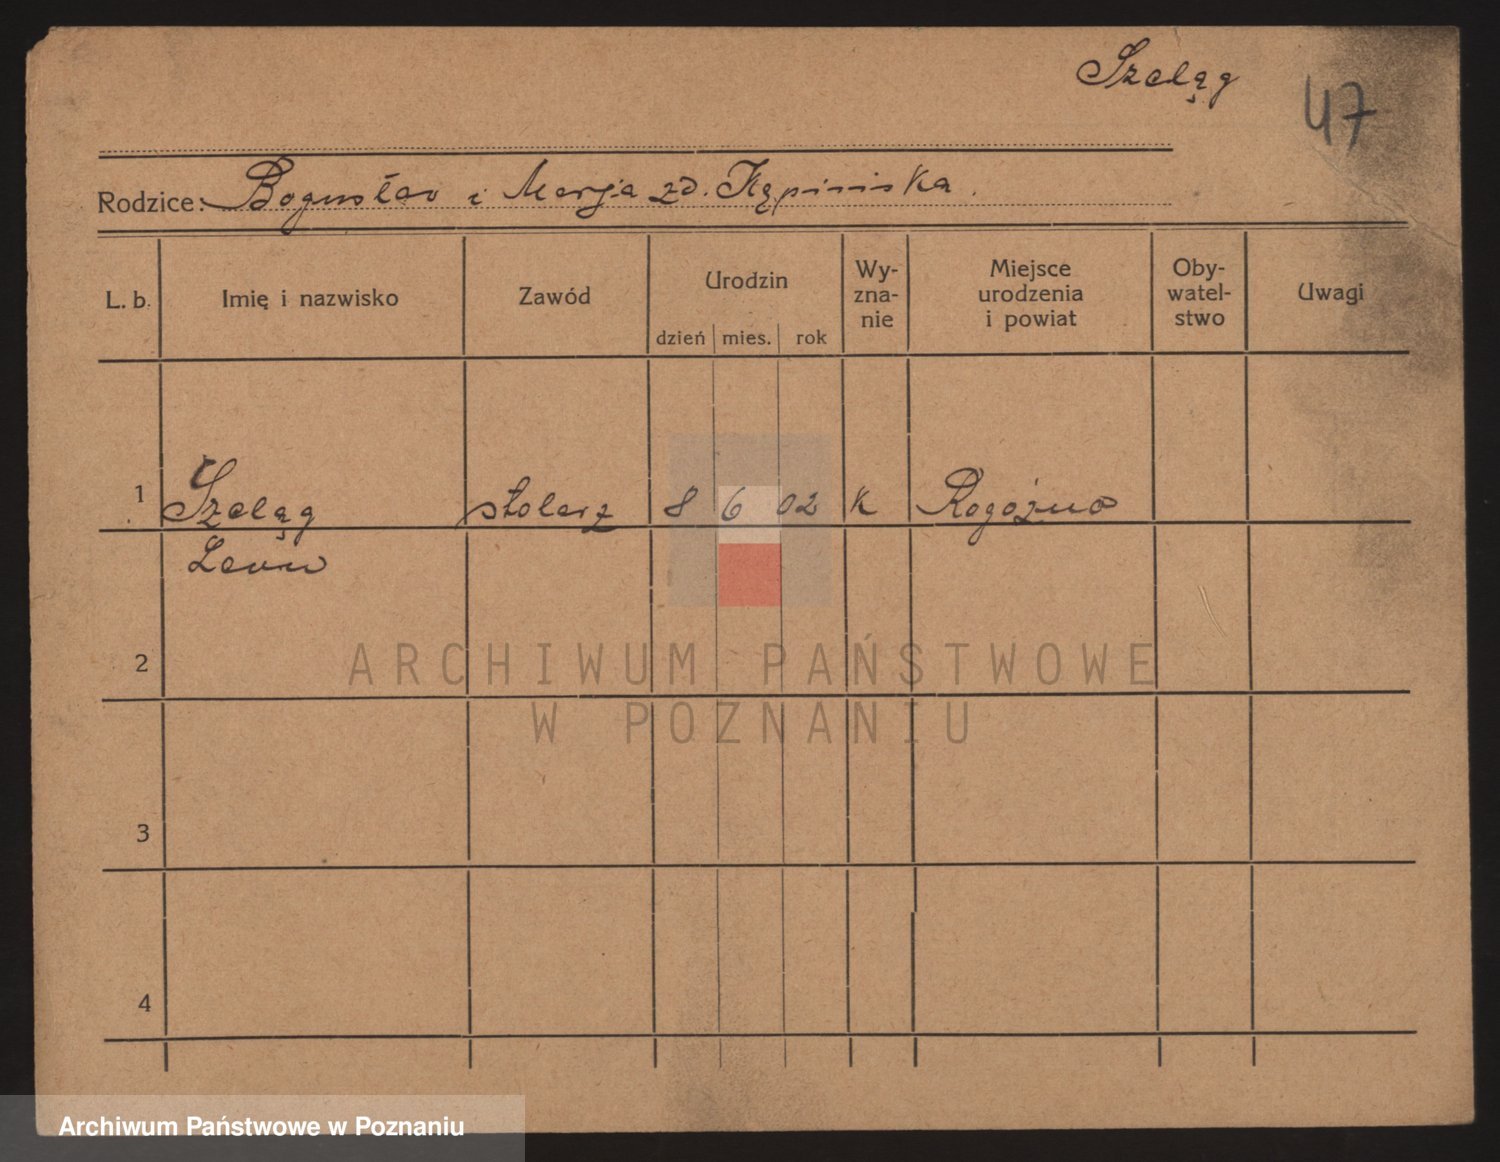 Szeląg
47
Rodzice: Bogusław i Marja zd. Kępińska.
L. b. Imię i nazwisko Zawód Urodzin Wy-zna-nie Miejsce urodzenia i powiat Oby-watel-stwo Uwagi
dzień mies. rok
1 Szeląg stolarz 8 6 02 K Rogoźno
Leon
2
ARCHIWUM PAŃSTWOWE
W POZNANIU
3
4
Archiwum Państwowe w Poznaniu